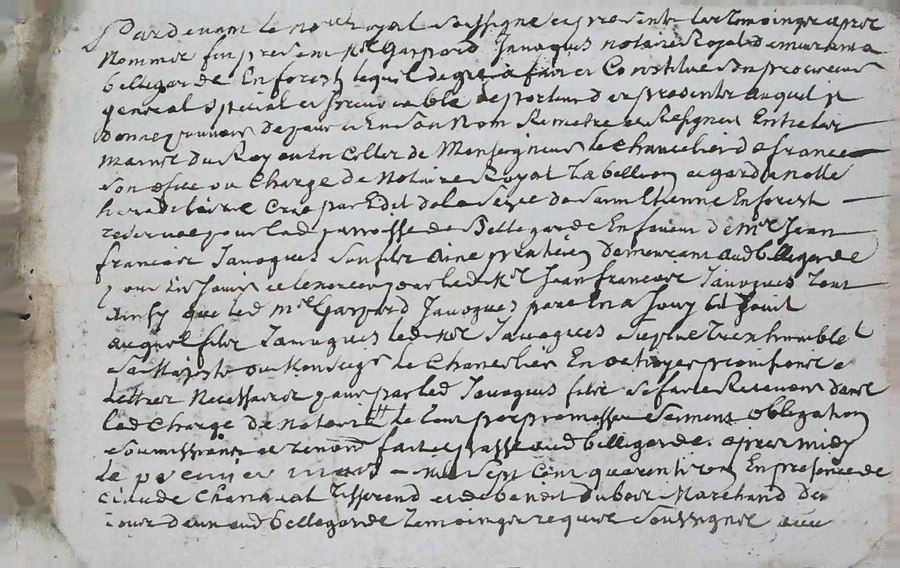 Pardevant le nore Royal soussigné et presents les temoings apres
nommes fut present Mr Gaspard Javogues notaire Royal demeurant a
bellegarde En forest lequel de gre a fait et Constitue son procureur
general special et Irrevocable le porteur des presentes auquel il
donne pouvoir de pour et En son Nom Remetre et Resigner Entre les
mains du Roy ou En Celles de Monseigneur le Chancelier de france
son office ou Charge de Notaire Royal tabellion et garde notte
hereditaire Crée par Edit de la de saint Etienne En forest
reservée pour lad parroisse de Bellegarde En faveur de mre Jean
francois Javogues son fils ainé praticien demeurant aud bellegarde
pour En Jouir et le par led Mr Jean francois Javogues tout
ainsy que led mre Gaspard Javogues pere En a Jouy et Jouit
auquel Javogues led Mr Javogues suplie tres humblet
sa Majesté ou Monseigr le Chancelier En octroyer provisions et
lettres Necessaires pour par led Javogues fils se faire Recevoir dans
lad Charge de notaire le tout par promesse serment obligation
soumissions et renon fait et passé aud bellegarde apres midy
le premier mars mil sept Cent quarente En presence de
Claude tisserend et de benoit dubois Marchand du
aud bellegarde temoings requis soussignes avec